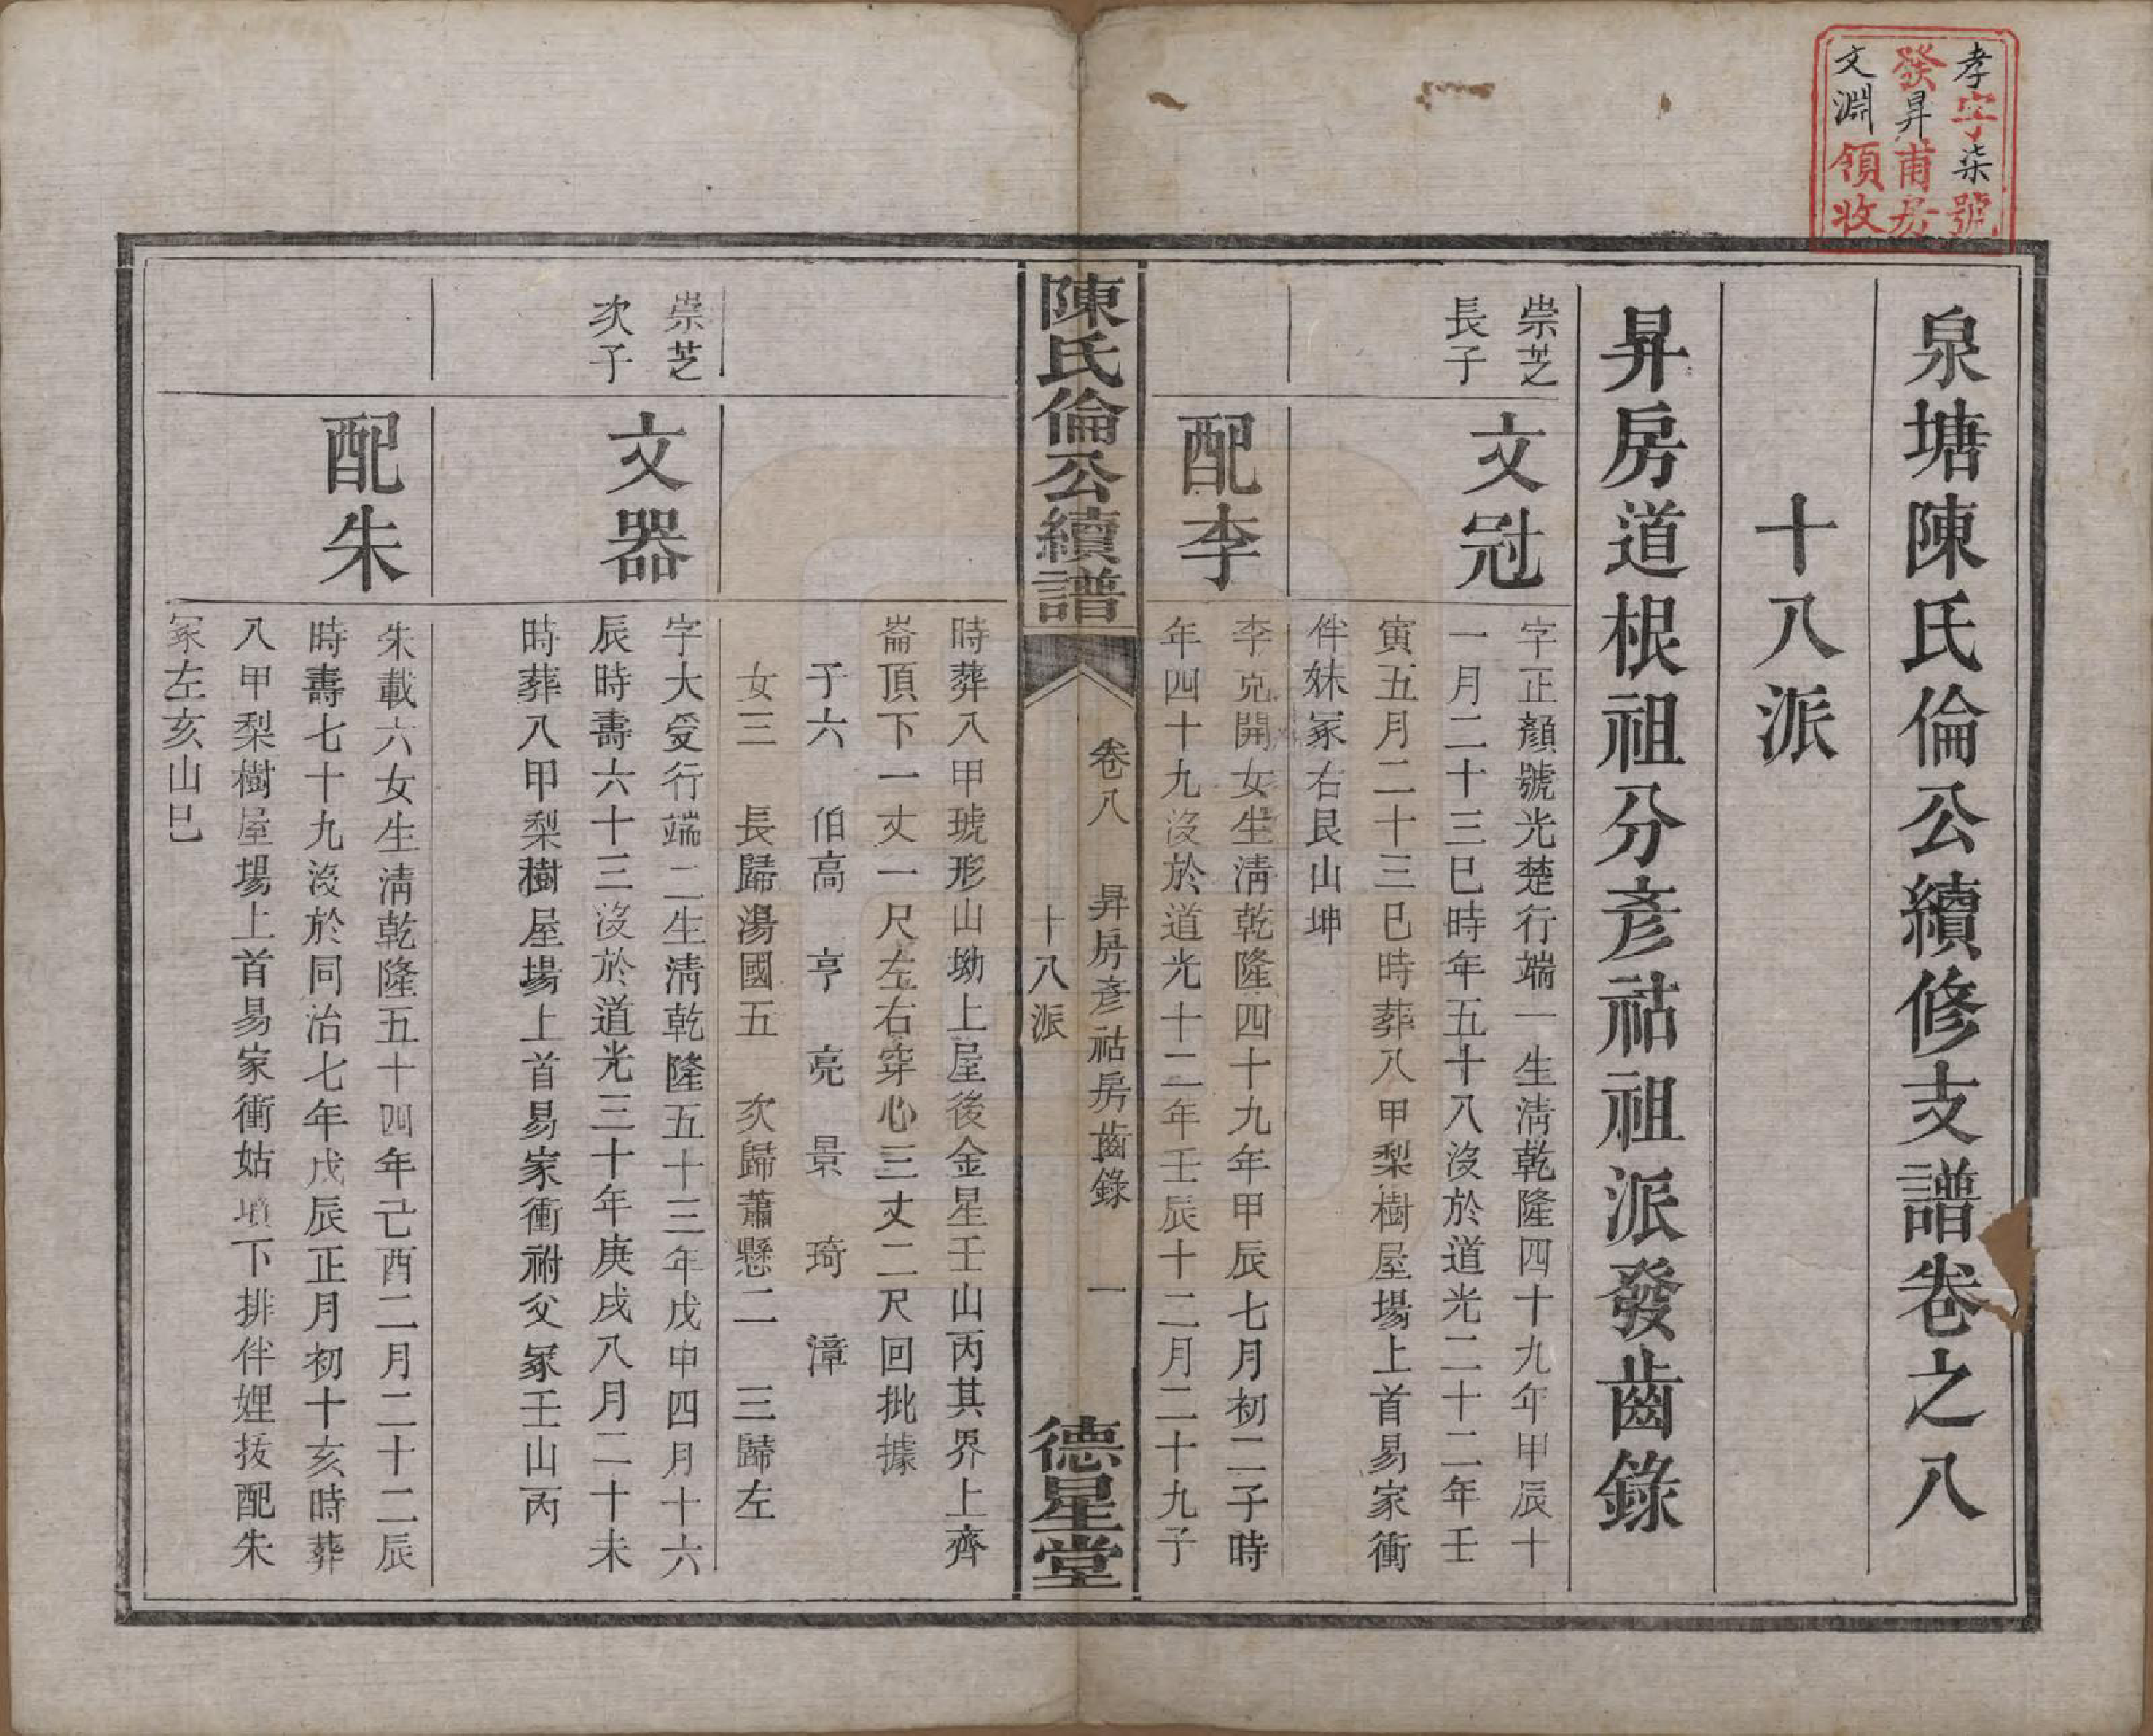 孝字柒號
發昇甫房
文淵領收
泉塘陳氏倫公續修支譜卷之八
十八派
昇房道根祖分彥祜祖派發齒錄
崇芝
長子
文冠
字正顏號光楚行端一生清乾隆四十九年甲辰十
一月二十三巳時年五十八沒於道光二十二年壬
寅五月二十三巳時葬八甲梨樹屋場上首易家衝
伴妹冢右艮山坤
配李
李克開女生清乾隆四十九年甲辰七月初二子時
年四十九沒於道光十二年壬辰十二月二十九子
陳氏倫公續譜
卷八 昇房彥祜房齒錄 一
十八派
德星堂
時葬八甲琥形山坳上屋後金星壬山丙其界上齊
崙頂下一丈一尺左右穿心三丈二尺回批據
子六 伯高 亨 亮 景 琦 漳
女三 長歸湯國五 次歸蕭懸二 三歸左
崇芝
次子
文器
字大受行端二生清乾隆五十三年戊申四月十六
辰時壽六十三沒於道光三十年庚戌八月二十未
時葬八甲梨樹屋場上首易家衝祔父冢壬山丙
配朱
朱載六女生清乾隆五十四年己酉二月二十二辰
時壽七十九沒於同治七年戊辰正月初十亥時葬
八甲梨樹屋場上首易家衝姑墳下排伴娌拔配朱
冢左亥山巳